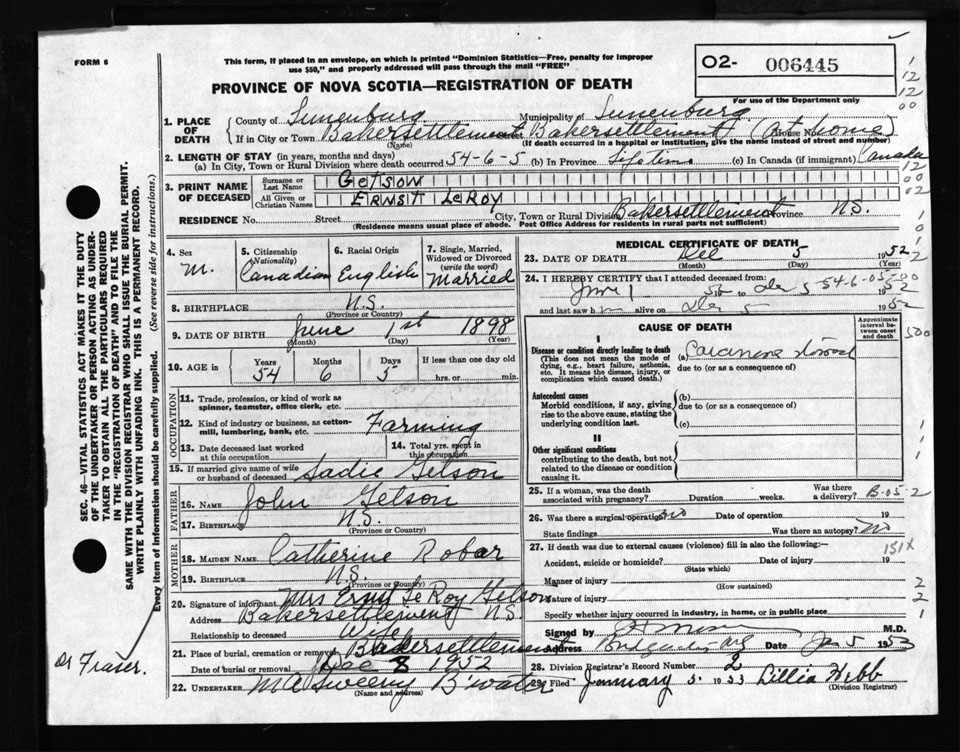 FORM 6
This form, if placed in an envelope, on which is printed "Dominion Statistics—Free, penalty for improper
use $50," and properly addressed will pass through the mail "FREE"
O2- 006445
For use of the Department only
PROVINCE OF NOVA SCOTIA—REGISTRATION OF DEATH
1. PLACE OF DEATH
County of Lunenburg Municipality of Lunenburg
If in City or Town Bakersettlement (Name) Bakersettlement House No. (At home)
(If death occurred in a hospital or institution, give the name instead of street and number)
2. LENGTH OF STAY (in years, months and days)
(a) In City, Town or Rural Division where death occurred 54-6-5 (b) In Province Lifetime (c) In Canada (if immigrant) Canada
3. PRINT NAME OF DECEASED
Surname or Last Name Getsow
All Given or Christian Names ERNST LeROY
RESIDENCE No. Street City, Town or Rural Division Bakersettlement Province N.S.
(Residence means usual place of abode. Post Office Address for residents in rural parts not sufficient)
4. Sex M.
5. Citizenship (Nationality) Canadian
6. Racial Origin English
7. Single, Married, Widowed or Divorced (write the word) Married
8. BIRTHPLACE N.S.
(Province or Country)
9. DATE OF BIRTH June 1st 1898
(Month) (Day) (Year)
10. AGE in Years 54 Months 6 Days 5 If less than one day old hrs. or min.
OCCUPATION
11. Trade, profession, or kind of work as spinner, teamster, office clerk, etc.
12. Kind of industry or business, as cotton-mill, lumbering, bank, etc. Farming
13. Date deceased last worked at this occupation
14. Total yrs. spent in this occupation
15. If married give name of wife or husband of deceased Sadie Getson
FATHER
16. NAME John Getson
17. BIRTHPLACE N.S.
(Province or Country)
MOTHER
18. MAIDEN NAME Catherine Robar
19. BIRTHPLACE N.S.
(Province or Country)
20. Signature of informant Mrs Ernst LeRoy Getson
Address Bakersettlement N.S.
Relationship to deceased Wife
21. Place of burial, cremation or removal Bakersettlement
Date of burial or removal Dec 8 1952
22. UNDERTAKER M A Sweeny B'water
(Name and address)
MEDICAL CERTIFICATE OF DEATH
23. DATE OF DEATH Dec 5 1952
(Month) (Day) (Year)
24. I HEREBY CERTIFY that I attended deceased from:
June 1 52 to Dec 5 1952
54-6-05-00
and last saw h m alive on Dec 5 1952
CAUSE OF DEATH
Approximate interval between onset and death
I
Disease or condition directly leading to death
(This does not mean the mode of dying, e.g., heart failure, asthenia, etc. It means the disease, injury, or complication which caused death.)
(a)
due to (or as a consequence of)
Antecedent causes
Morbid conditions, if any, giving rise to the above cause, stating the underlying condition last.
(b)
due to (or as a consequence of)
(c)
II
Other significant conditions
contributing to the death, but not related to the disease or condition causing it.
25. If a woman, was the death associated with pregnancy? Duration weeks. Was there a delivery? B-05-2
26. Was there a surgical operation? No Date of operation 19
State findings Was there an autopsy? No
27. If death was due to external causes (violence) fill in also the following:— 151X
Accident, suicide or homicide? Date 19
(State which)
Manner of injury
(How sustained)
Nature of injury
Specify whether injury occurred in industry, in home, or in public place
Signed by M.D.
Address Bridgewater NS Date Jan 5 1953
28. Division Registrar's Record Number 2
29. Filed January 5. 1953 Lillia Webb
(Division Registrar)
SEC. 46—VITAL STATISTICS ACT MAKES IT THE DUTY
OF THE UNDERTAKER OR PERSON ACTING AS UNDER-
TAKER TO OBTAIN ALL THE PARTICULARS REQUIRED
IN THE "REGISTRATION OF DEATH" AND TO FILE THE
SAME WITH THE DIVISION REGISTRAR WHO SHALL ISSUE THE BURIAL PERMIT.
WRITE PLAINLY WITH UNFADING INK. THIS IS A PERMANENT RECORD.
Every item of Information should be carefully supplied. (See reverse side for instructions.)
Dr Fraser.